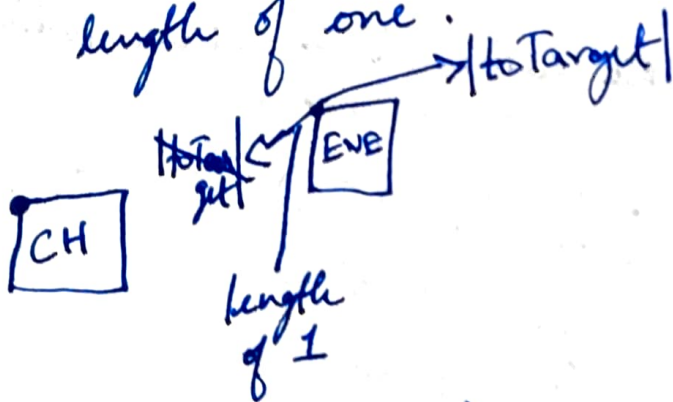 length of one.
|toTarget|
ENE
CH
length
of 1